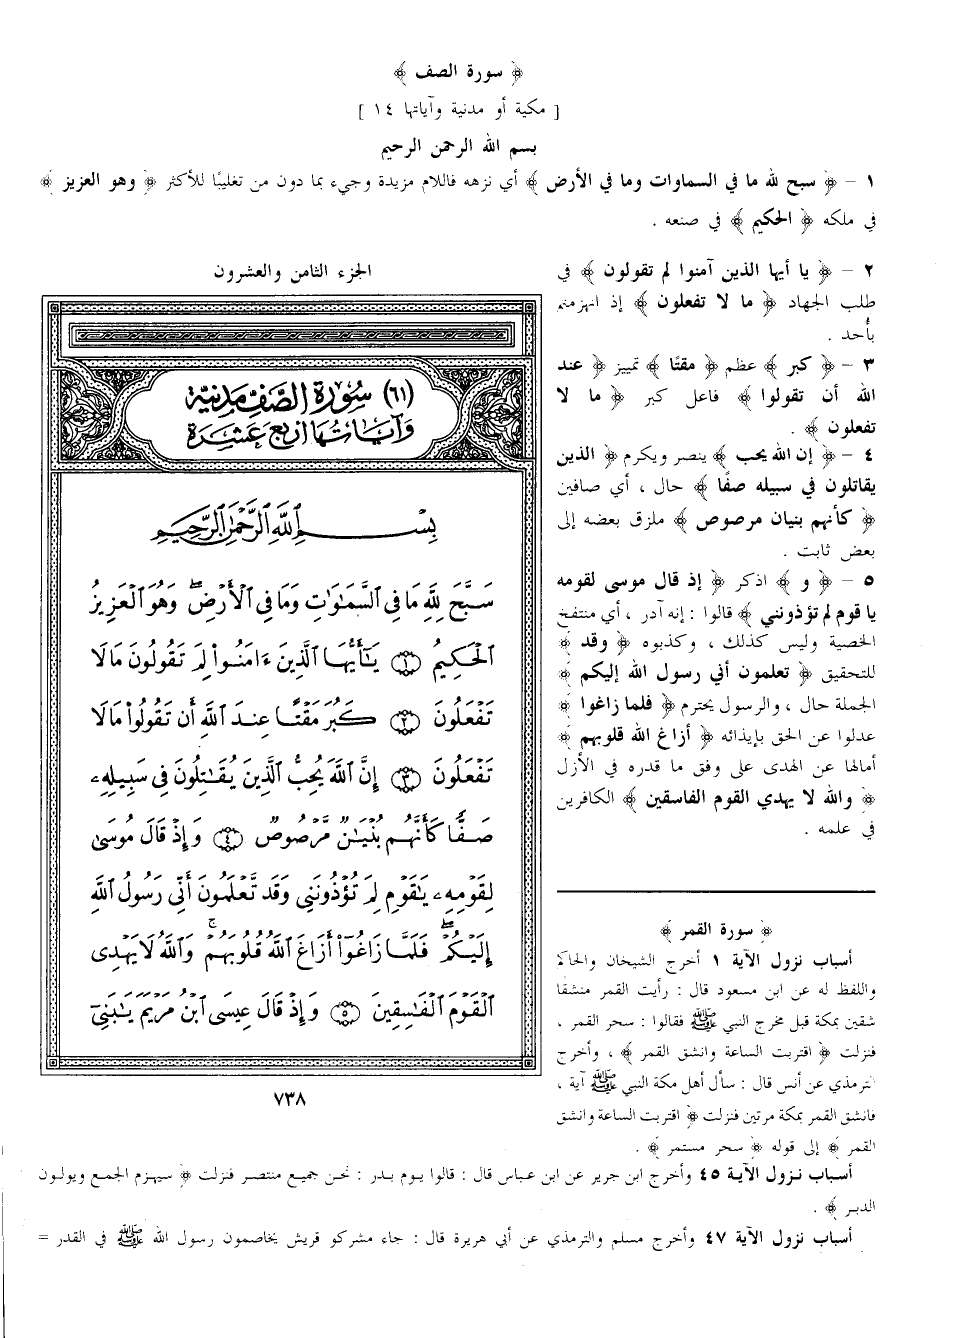 ﴿ سورة الصف ﴾
[ مكية أو مدنية وآياتها ١٤ ]
بسم الله الرحمن الرحيم
١ – ﴿ سبح لله ما في السماوات وما في الأرض ﴾ أي نزهه فاللام مزيدة وجيء بما دون من تغليبًا للأكثر ﴿ وهو العزيز ﴾
في ملكه ﴿ الحكيم ﴾ في صنعه .
٢ – ﴿ يا أيها الذين آمنوا لم تقولون ﴾ في
طلب الجهاد ﴿ ما لا تفعلون ﴾ إذ انهزمتم
بأُحد .
٣ – ﴿ كبر ﴾ عظم ﴿ مقتًا ﴾ تمييز ﴿ عند
الله أن تقولوا ﴾ فاعل كبر ﴿ ما لا
تفعلون ﴾ .
٤ – ﴿ إن الله يحب ﴾ ينصر ويكرم ﴿ الذين
يقاتلون في سبيله صفًا ﴾ حال ، أي صافين
﴿ كأنهم بنيان مرصوص ﴾ ملزق بعضه إلى
بعض ثابت .
٥ – ﴿ و ﴾ اذكر ﴿ إذ قال موسى لقومه
يا قوم لم تؤذونني ﴾ قالوا : إنه آدر ، أي منتفخ
الخصية وليس كذلك ، وكذبوه ﴿ وقد ﴾
للتحقيق ﴿ تعلمون أني رسول الله إليكم ﴾
الجملة حال ، والرسول يحترم ﴿ فلما زاغوا ﴾
عدلوا عن الحق بإيذائه ﴿ أزاغ الله قلوبهم ﴾
أمالها عن الهدى على وفق ما قدره في الأزل
﴿ والله لا يهدي القوم الفاسقين ﴾ الكافرين
في علمه .
الجزء الثامن والعشرون
(٦١) سُورَةُ الصَّفِّ مَدَنِيَّة
وَآيَاتُهَا أَرْبَعَ عَشِرَة
بِسْمِ ٱللَّهِ ٱلرَّحْمَٰنِ ٱلرَّحِيمِ
سَبَّحَ لِلَّهِ مَا فِى ٱلسَّمَٰوَٰتِ وَمَا فِى ٱلْأَرْضِ ۖ وَهُوَ ٱلْعَزِيزُ
ٱلْحَكِيمُ ١ يَٰٓأَيُّهَا ٱلَّذِينَ ءَامَنُوا۟ لِمَ تَقُولُونَ مَا لَا
تَفْعَلُونَ ٢ كَبُرَ مَقْتًا عِندَ ٱللَّهِ أَن تَقُولُوا۟ مَا لَا
تَفْعَلُونَ ٣ إِنَّ ٱللَّهَ يُحِبُّ ٱلَّذِينَ يُقَٰتِلُونَ فِى سَبِيلِهِۦ
صَفًّا كَأَنَّهُم بُنْيَٰنٌ مَّرْصُوصٌ ٤ وَإِذْ قَالَ مُوسَىٰ
لِقَوْمِهِۦ يَٰقَوْمِ لِمَ تُؤْذُونَنِى وَقَد تَّعْلَمُونَ أَنِّى رَسُولُ ٱللَّهِ
إِلَيْكُمْ ۖ فَلَمَّا زَاغُوٓا۟ أَزَاغَ ٱللَّهُ قُلُوبَهُمْ ۚ وَٱللَّهُ لَا يَهْدِى
ٱلْقَوْمَ ٱلْفَٰسِقِينَ ٥ وَإِذْ قَالَ عِيسَى ٱبْنُ مَرْيَمَ يَٰبَنِىٓ
٧٣٨
﴿ سورة القمر ﴾
أسباب نزول الآية ١ أخرج الشيخان والحاك
واللفظ له عن ابن مسعود قال : رأيت القمر منشقا
شقين بمكة قبل مخرج النبي ﷺ فقالوا : سحر القمر ،
فنزلت ﴿ اقتربت الساعة وانشق القمر ﴾ ، وأخرج
الترمذي عن أنس قال : سأل أهل مكة النبي ﷺ آية ،
فانشق القمر بمكة مرتين فنزلت ﴿ اقتربت الساعة وانشق
القمر ﴾ إلى قوله ﴿ سحر مستمر ﴾ .
أسباب نزول الآية ٤٥ وأخرج ابن جرير عن ابن عباس قال : قالوا يوم بدر : نحن جميع منتصر فنزلت ﴿ سيهزم الجمع ويولون
الدبر ﴾ .
أسباب نزول الآية ٤٧ وأخرج مسلم والترمذي عن أبي هريرة قال : جاء مشركو قريش يخاصمون رسول الله ﷺ في القدر =